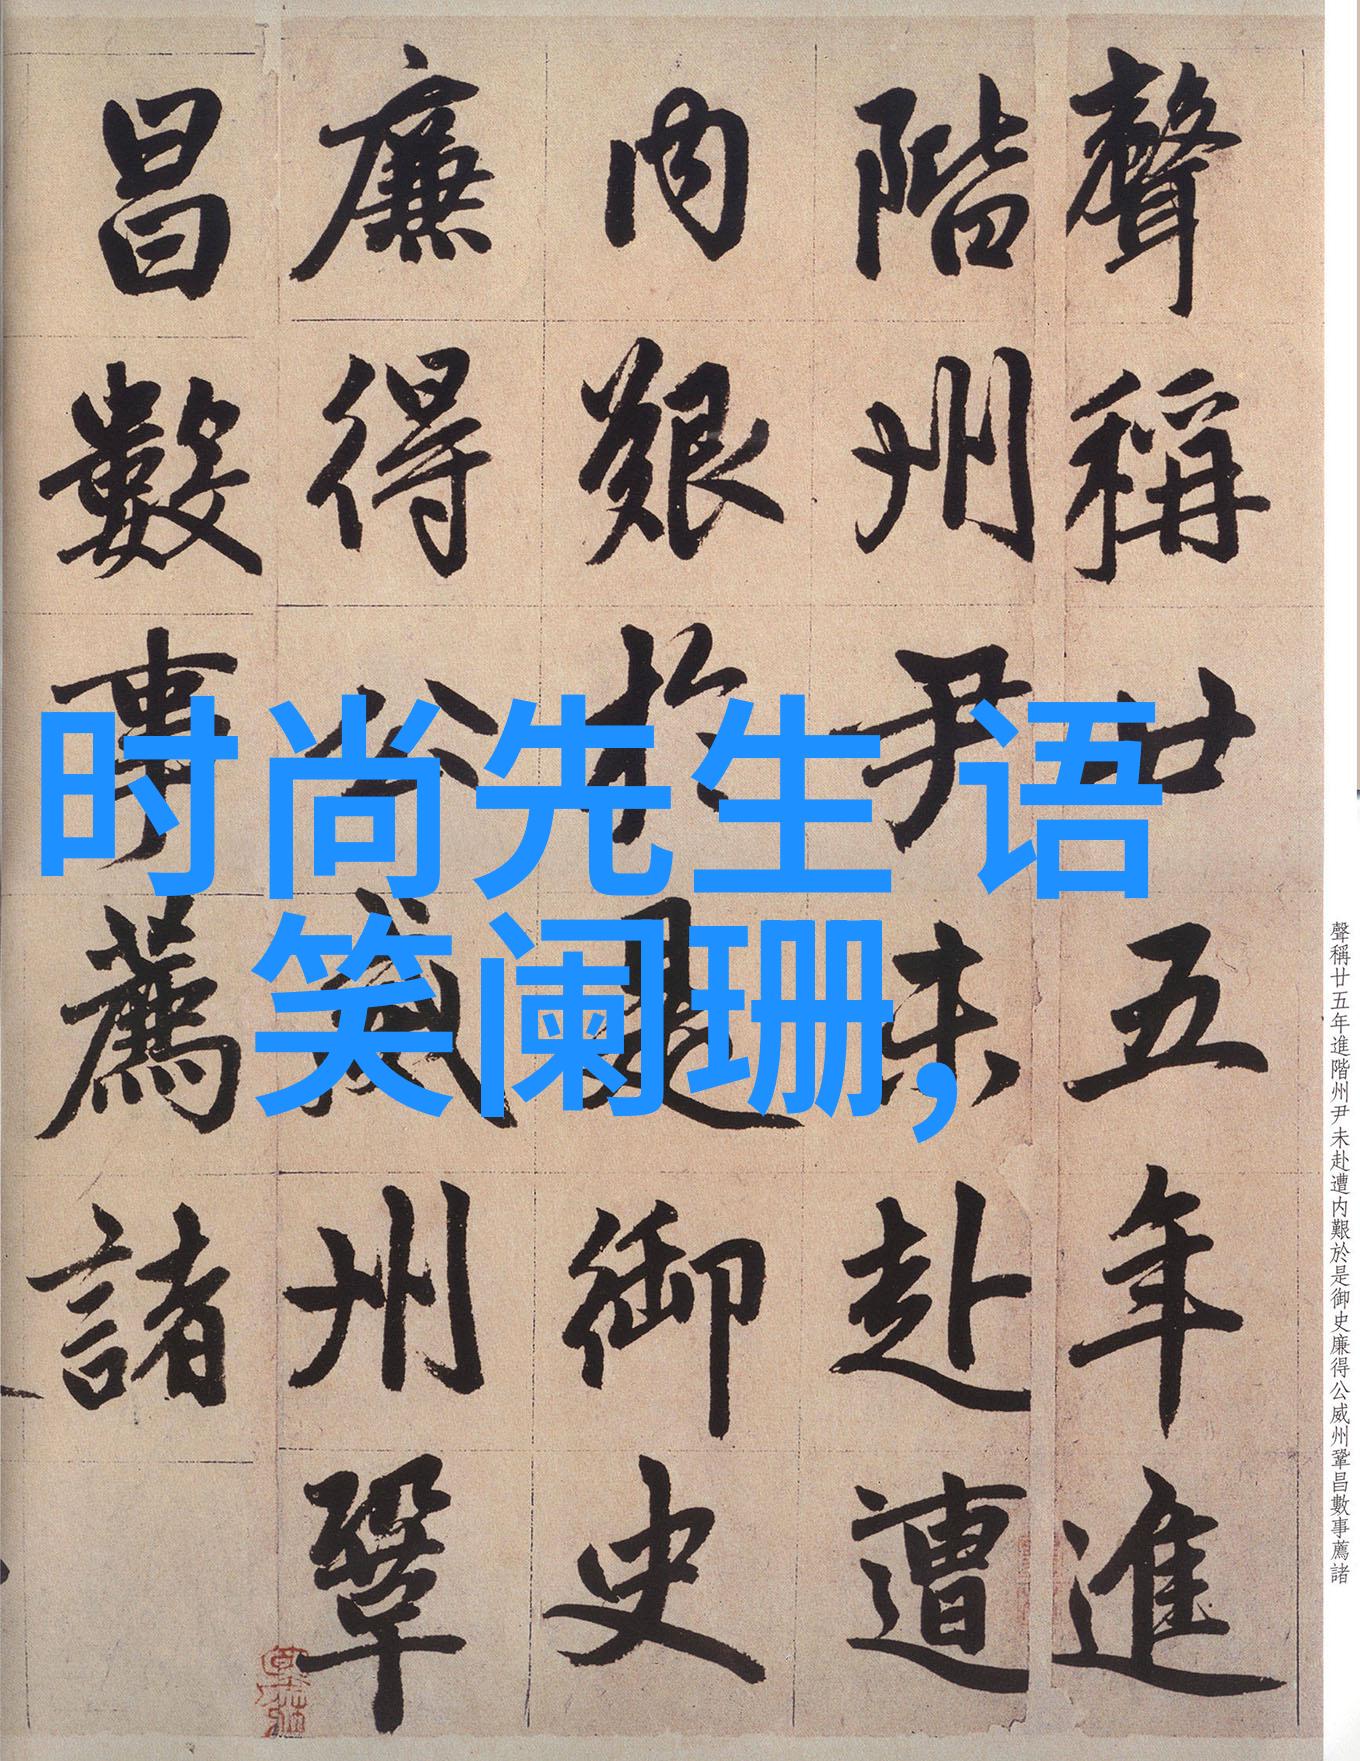 聲稱廿五年進
階州尹未赴遭
内艱於是御史
廉得公威州鞏
昌數事薦諸
时尚先生 语
笑阑珊,
聲稱廿五年進階州尹未赴遭内艱於是御史廉得公威州鞏昌數事薦諸